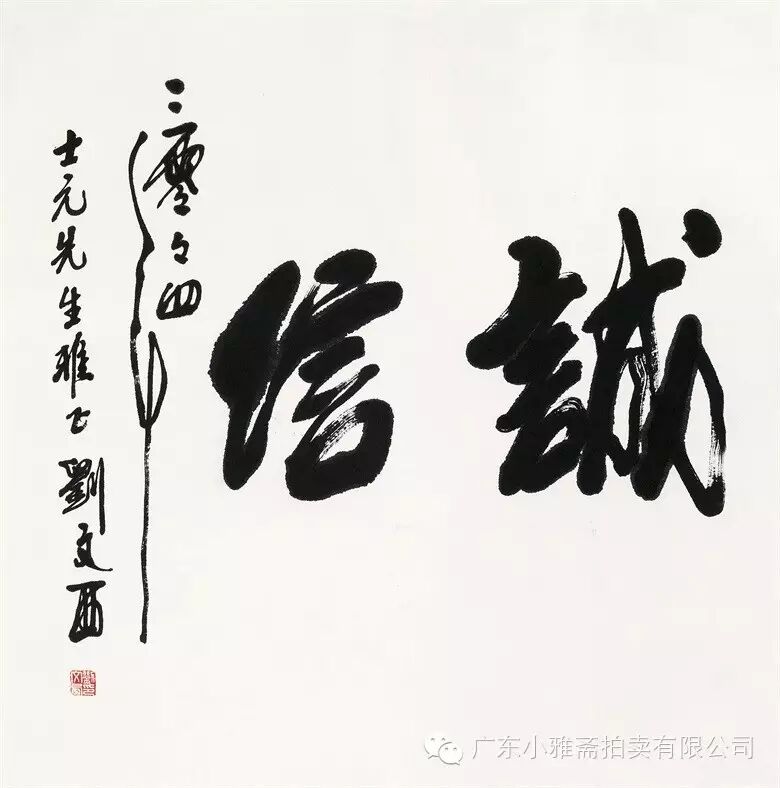 誠信
二零々四年
士元先生雅正 劉文西
广东小雅斋拍卖有限公司